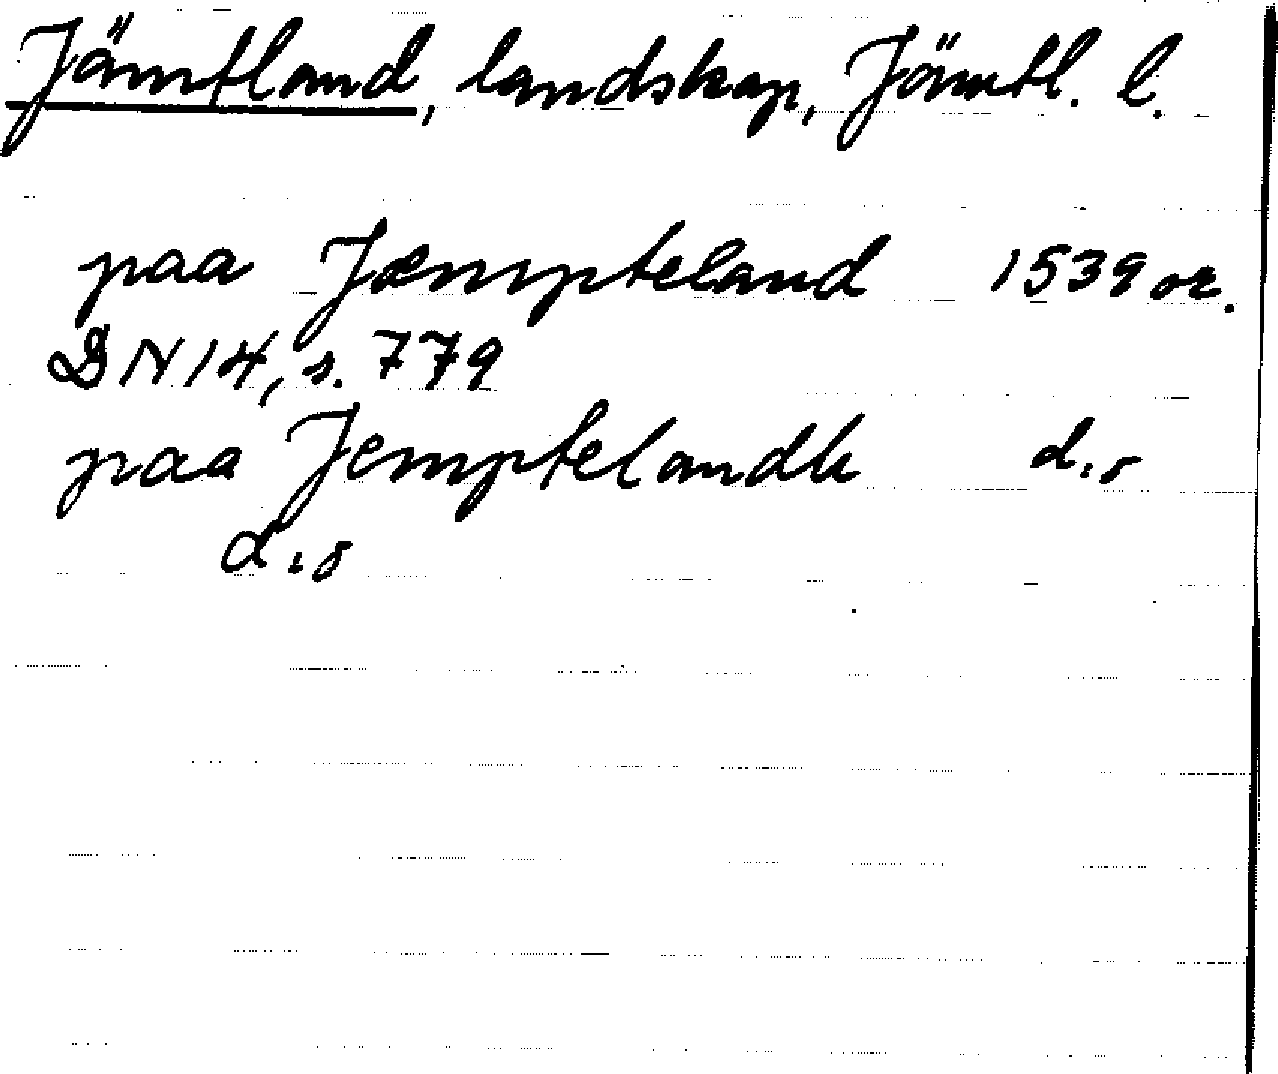 Jämtland, landskap, Jämtl. l.
paa Jæmpteland 1539 or.
DN 14, s. 779
paa Jemptelandh d:o
d:o